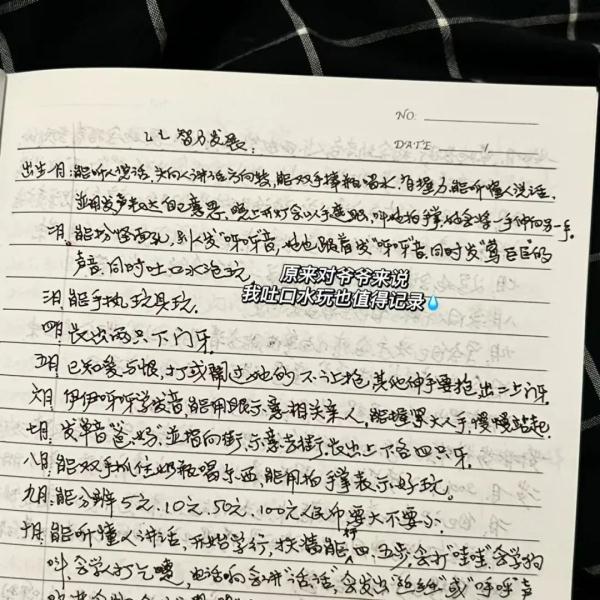 NO.
DATE
智力发展:
出生一月:能听人说话,头向人讲话方向转,能双手捧奶瓶喝水,有握力,能听懂人说话,
並用发声表达自己意思
二月,能扮怪面孔,别人发"呀呀"音,她也跟着发"呀呀"音,同时发 的
声音.同时吐口水泡玩.
原来对爷爷来说
我吐口水玩也值得记录💧
三月:能手执玩具玩.
四月:长出两只下门牙.
五月:已知爱与恨,打或闹过她的不让抱,其他伸手要抱,出二上门牙.
六月:伊伊呀呀学发音,能用眼示意相关亲人,能握紧大人手,慢慢站起.
七月:发单音"爸、妈",並指向街,示意去街,长出上下各四只牙.
八月:能双手抓住奶瓶喝东西,能用拍手掌表示好玩。
九月:能分辨5元、10元、50元、100元人民币要大不要小.
十月:能听懂人讲话,开始学行,扶着能行四、五步,会打"哇哇",会学狗
叫,会学人打乞嚏,电话响会讲"话话",会发出 或"呼呼"声